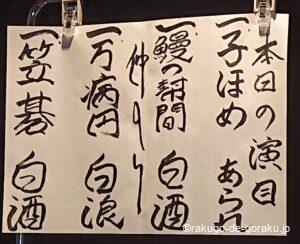 本日の演目
一子ほめ あられ
一鰻の幇間 白酒
仲入り
一万病円 白浪
一笠碁 白酒
©rakugo-de-goraku.jp